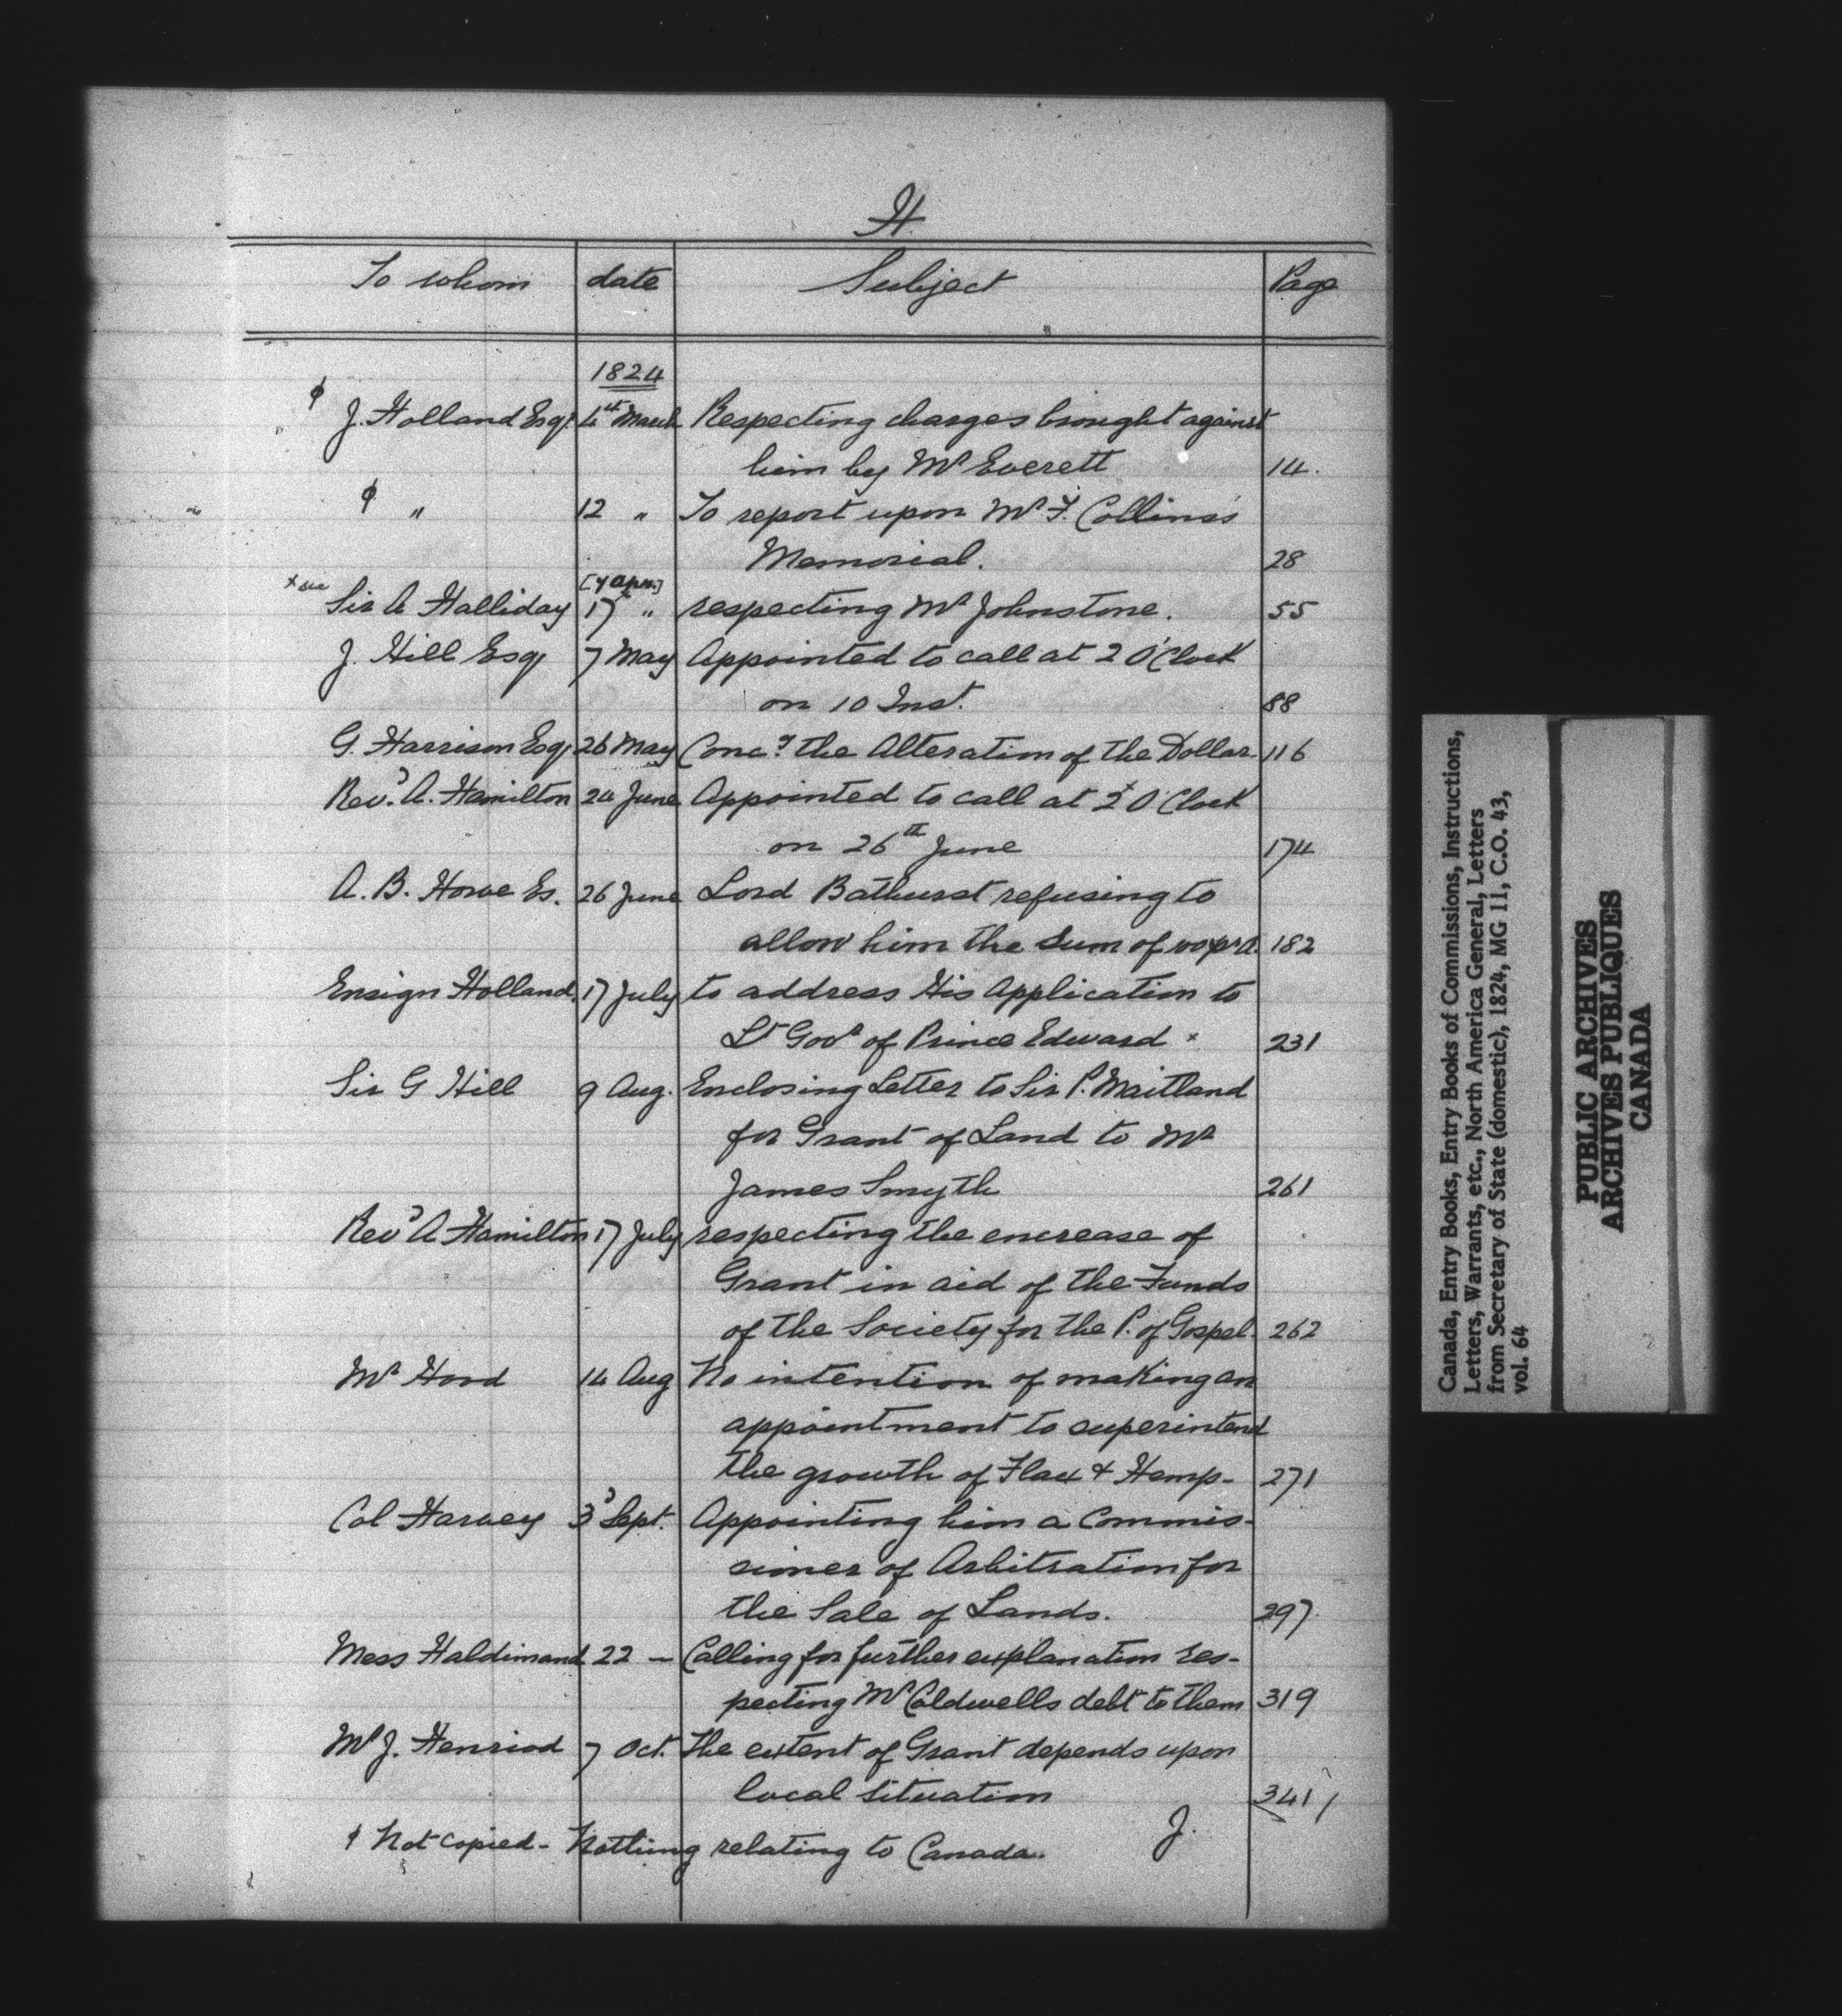 H.
To whom date Subject Page
1824
ϕ J. Holland Esqr 4th March Respecting charges brought against
him by Mr Everett 14.
ϕ " 12 " To report upon Mr F. Collins's
Memorial. 28
[7 Apr.]
x sic Sir A Halliday 17 " respecting Mr Johnstone. 55
J. Hill Esq 7 May Appointed to call at 2 O'Clock
on 10 Inst. 88
G. Harrison Esq 26 May Concg the Alteration of the Dollar. 116
Revd. A. Hamilton 24 June Appointed to call at 2 O'Clock
on 26th June 174
A. B. Howe Es. 26 June Lord Bathurst refusing to
allow him the Sum of 182
Ensign Holland 17 July to address His Application to
Lt Govr of Prince Edward x 231
Sir G Hill 9 Aug. Enclosing Letter to Sir P. Maitland
for Grant of Land to Mr
James Smyth 261
Revd A Hamilton 17 July respecting the encrease of
Grant in aid of the Funds
of the Society for the P. of Gospel. 262
Mr Hord 14 Aug No intention of making an
appointment to superintend
the growth of Flax & Hemp- 271
Col Harvey 3d Sept. Appointing him a Commis-
sioner of Arbitration for
the Sale of Lands. 297
Mess Haldimand 22 — Calling for further explanation res-
pecting Mr Caldwells debt to them 319
Mr J. Henriod 7 Oct. The extent of Grant depends upon
local Situation 341
ϕ Not copied - Nothing relating to Canada. J.
Canada, Entry Books, Entry Books of Commissions, Instructions,
Letters, Warrants, etc., North America General, Letters
from Secretary of State (domestic), 1824, MG 11, C.O. 43,
vol. 64
PUBLIC ARCHIVES
ARCHIVES PUBLIQUES
CANADA